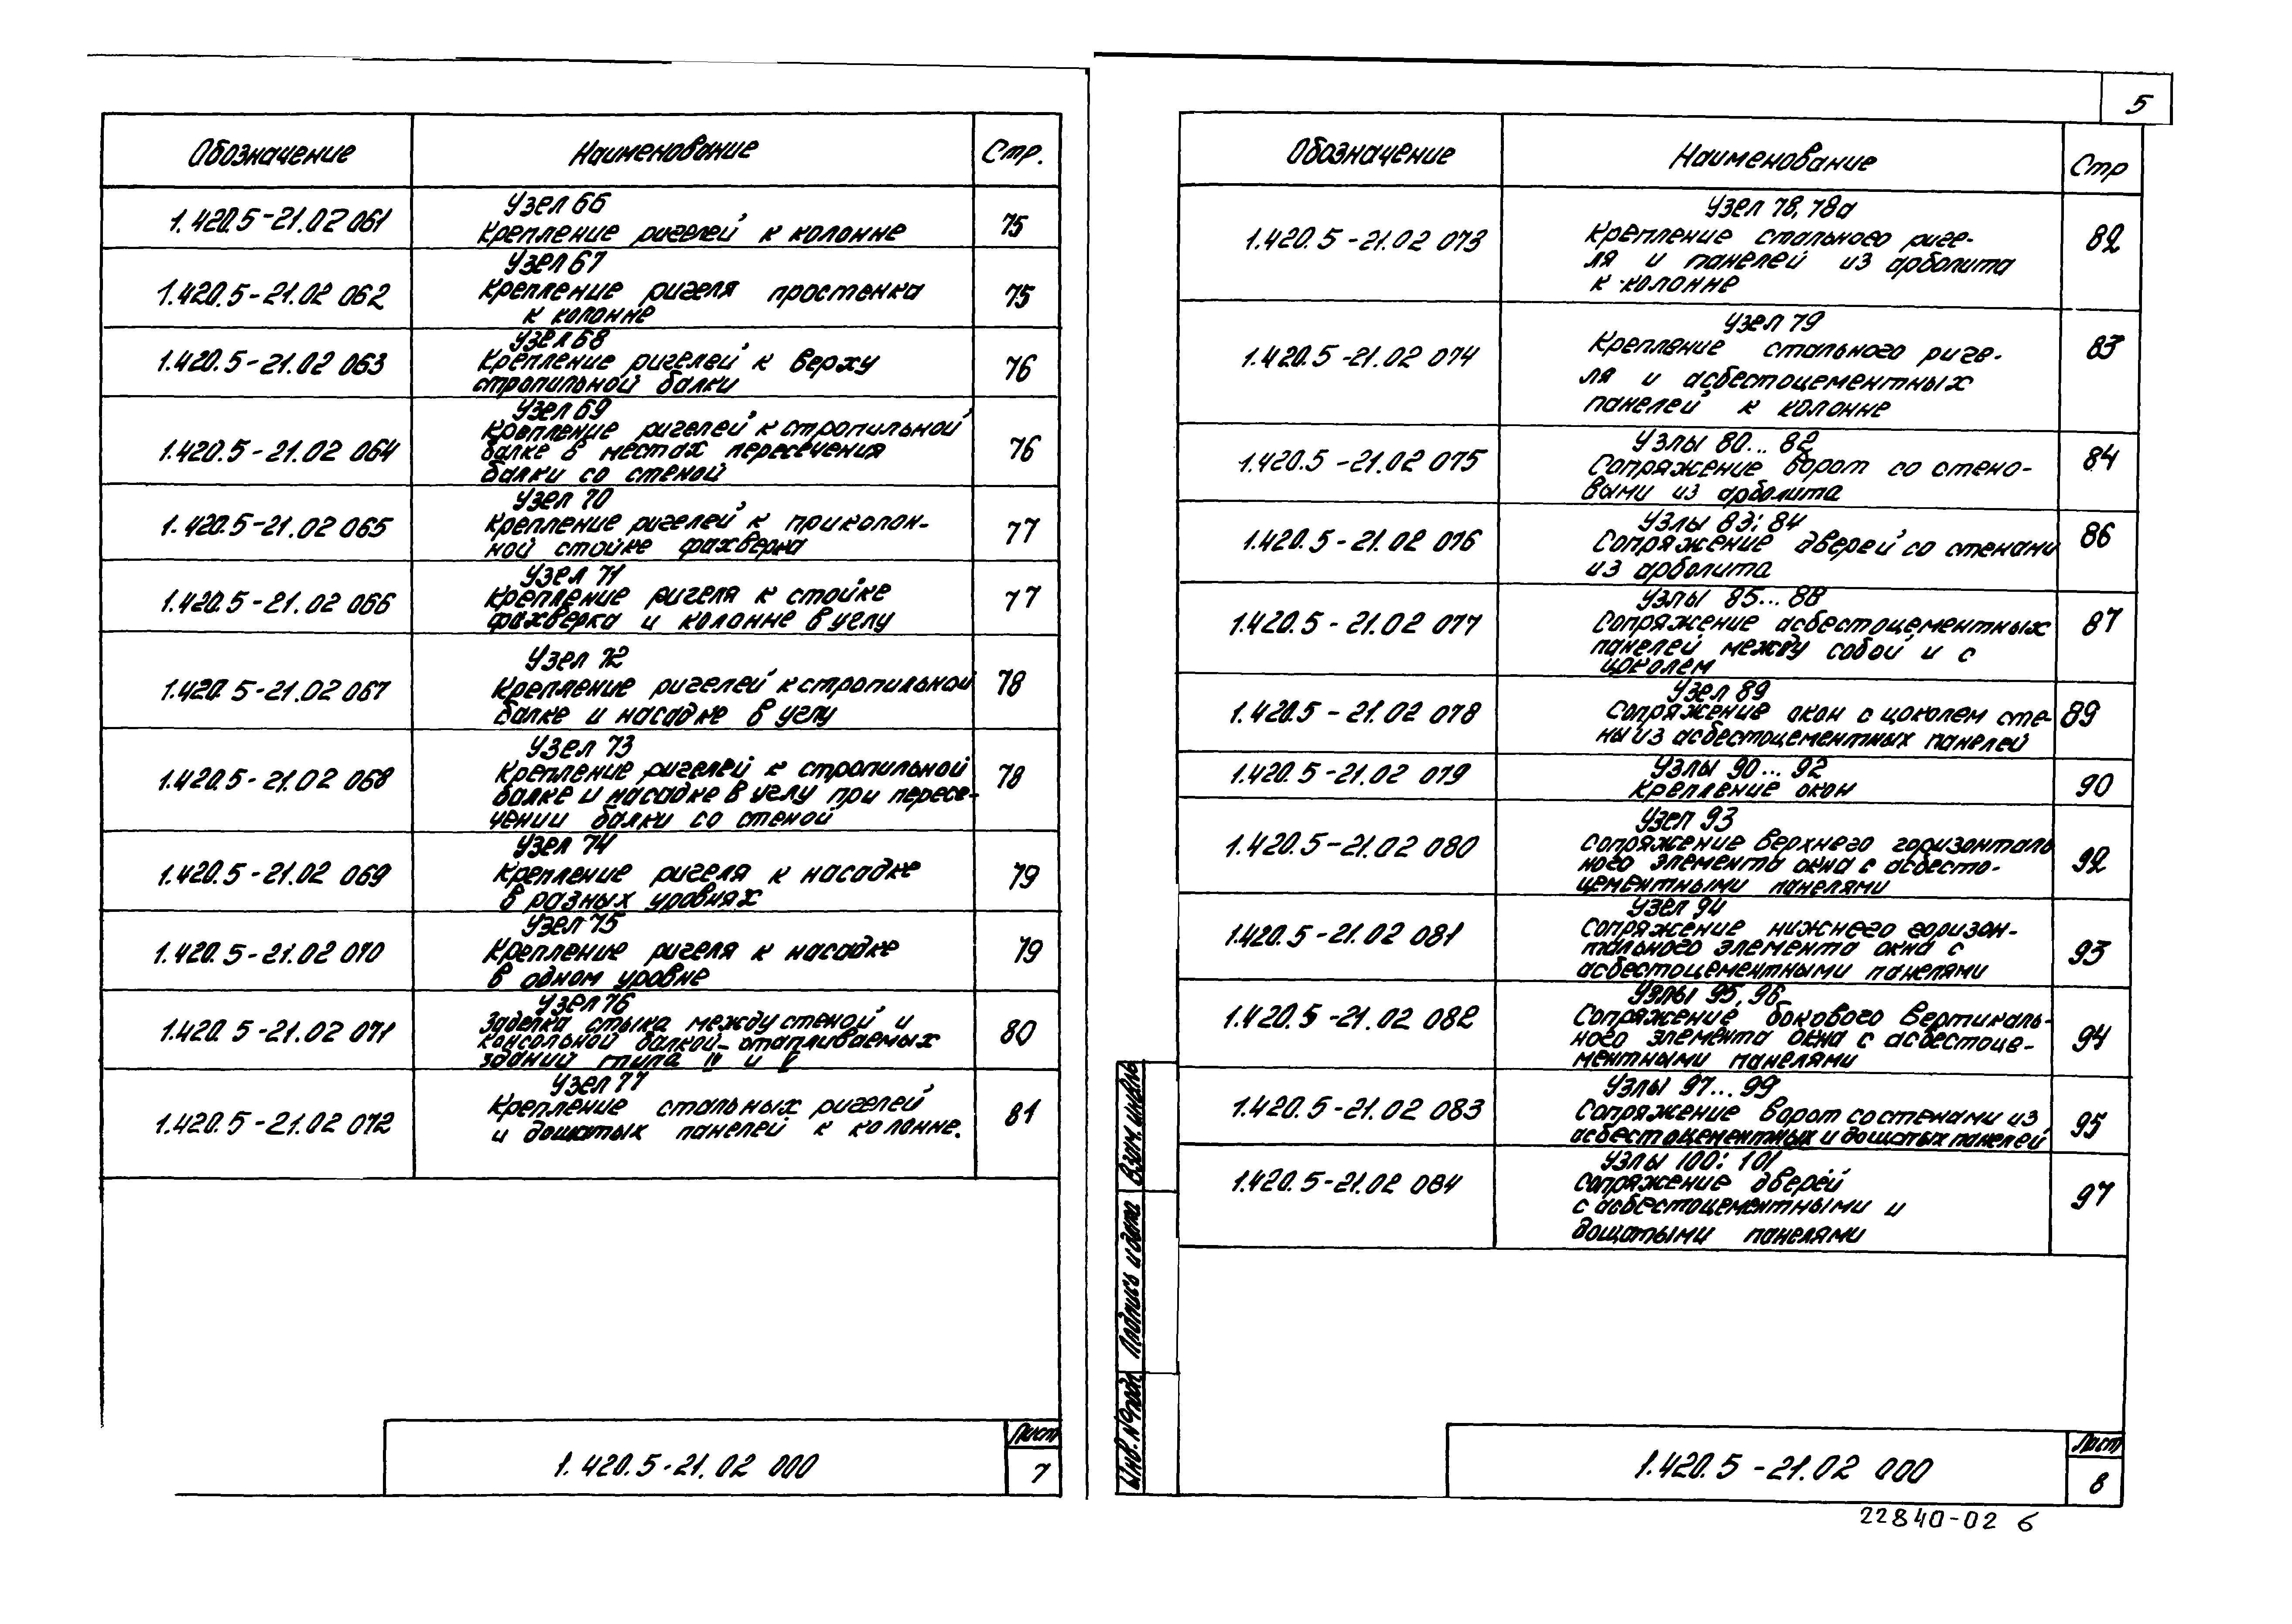 Обозначение Наименование Стр.
1.420.5-21.02 061
Узел 66
Крепление ригелей к колонне
75
1.420.5-21.02 062
Узел 67
Крепление ригеля простенка
к колонне
75
1.420.5-21.02 063
Узел 68
Крепление ригелей к верху
стропильной балки
76
1.420.5-21.02 064
Узел 69
Крепление ригелей к стропильной
балке в местах пересечения
балки со стеной
76
1.420.5-21.02 065
Узел 70
Крепление ригелей к приколон-
ной стойке фахверка
77
1.420.5-21.02 066
Узел 71
Крепление ригеля к стойке
фахверка и колонне в углу
77
1.420.5-21.02 067
Узел 72
Крепление ригелей к стропильной
балке и насадке в углу
78
1.420.5-21.02 068
Узел 73
Крепление ригелей к стропильной
балке и насадке в углу при пересе-
чении балки со стеной
78
1.420.5-21.02 069
Узел 74
Крепление ригеля к насадке
в разных уровнях
79
1.420.5-21.02 070
Узел 75
Крепление ригеля к насадке
в одном уровне
79
1.420.5-21.02 071
Узел 76
Заделка стыка между стеной и
консольной балкой отапливаемых
зданий типа и
80
1.420.5-21.02 072
Узел 77
Крепление стальных ригелей
и дощатых панелей к колонне.
81
1.420.5-21.02 000
Лист
7
5
Обозначение Наименование Стр
1.420.5-21.02 073
Узел 78, 78а
Крепление стального риге-
ля и панелей из арболита
к колонне
82
1.420.5-21.02 074
Узел 79
Крепление стального риге-
ля и асбестоцементных
панелей к колонне
83
1.420.5-21.02 075
Узлы 80...82
Сопряжение ворот со стено-
выми из арболита
84
1.420.5-21.02 076
Узлы 83; 84
Сопряжение дверей со стенами
из арболита
86
1.420.5-21.02 077
Узлы 85...88
Сопряжение асбестоцементных
панелей между собой и с
цоколем
87
1.420.5-21.02 078
Узел 89
Сопряжение окон с цоколем сте-
ны из асбестоцементных панелей
89
1.420.5-21.02 079
Узлы 90...92
Крепление окон
90
1.420.5-21.02 080
Узел 93
Сопряжение верхнего горизонталь
ного элемента окна с асбесто-
цементными панелями
92
1.420.5-21.02 081
Узел 94
Сопряжение нижнего горизон-
тального элемента окна с
асбестоцементными панелями
93
1.420.5-21.02 082
Узлы 95, 96
Сопряжение бокового вертикаль-
ного элемента окна с асбестоце-
ментными панелями
94
1.420.5-21.02 083
Узлы 97...99
Сопряжение ворот со стенами из
асбестоцементных и дощатых панелей
95
1.420.5-21.02 084
Узлы 100; 101
Сопряжение дверей
с асбестоцементными и
дощатыми панелями
97
Взам. инв.№
Подпись и дата
Инв. № подл.
1.420.5-21.02 000
Лист
8
22840-02 6